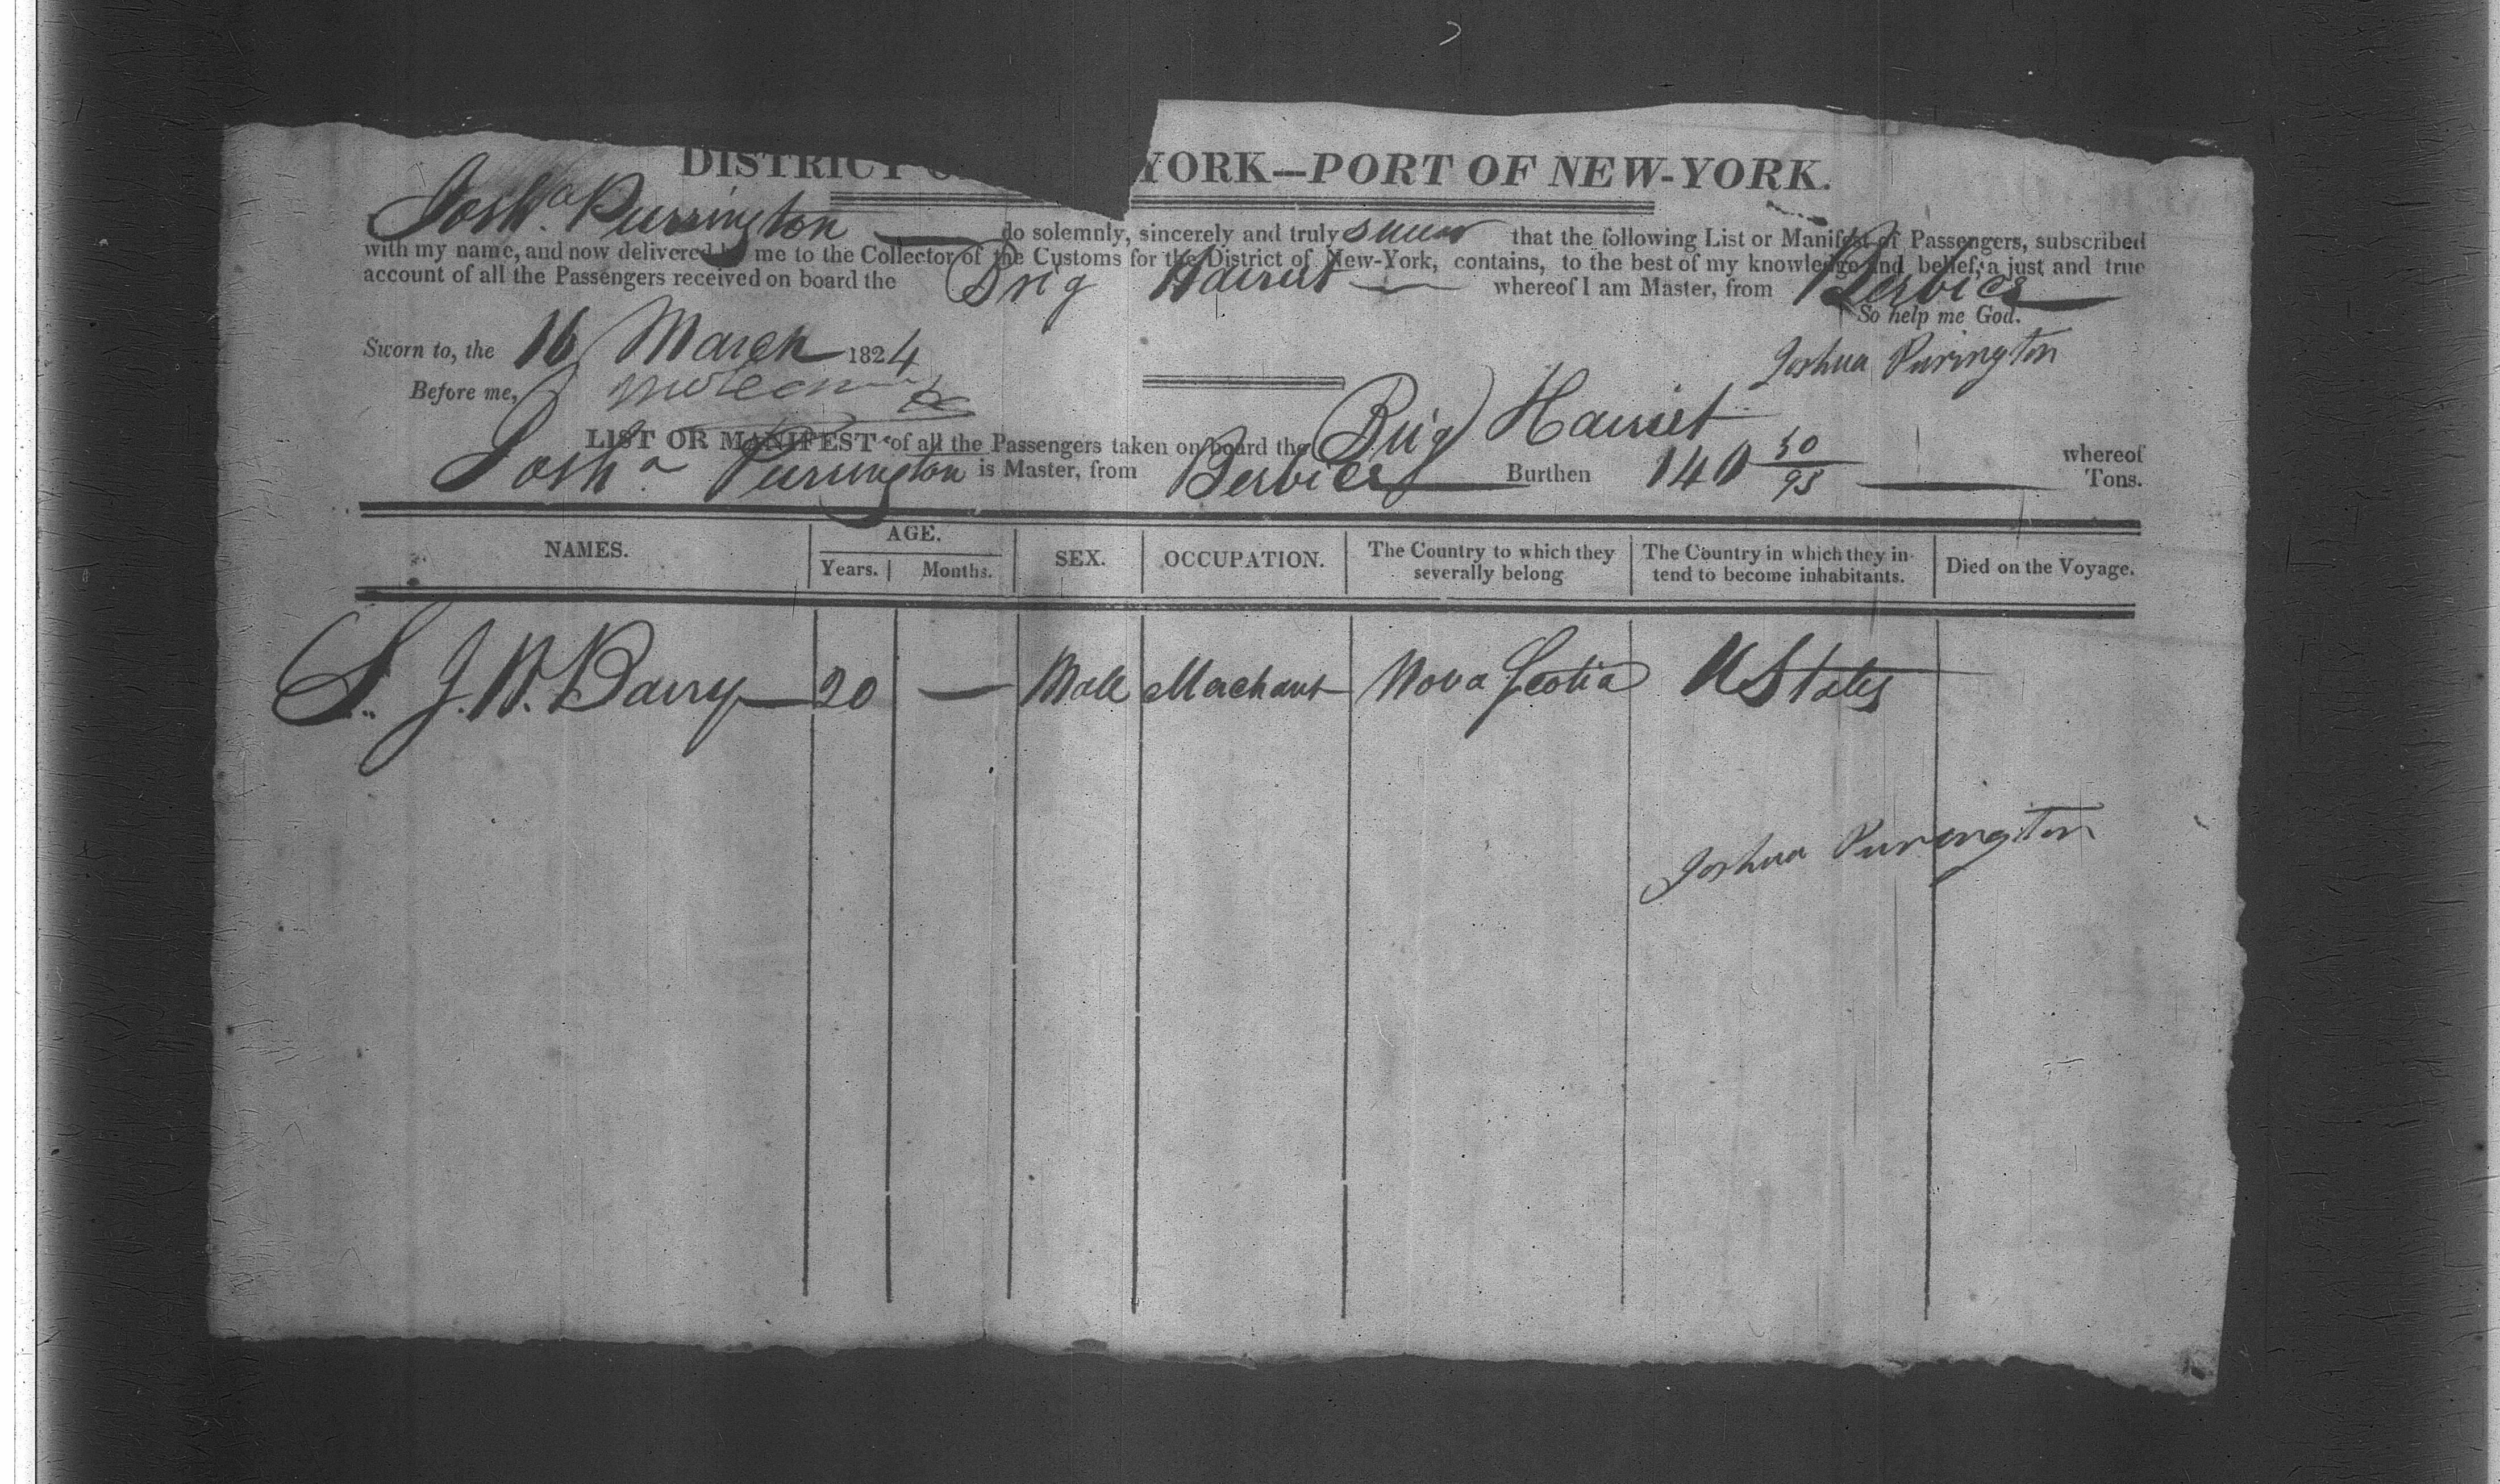 DISTRICT O YORK—PORT OF NEW-YORK.
Josha. Purrington do solemnly, sincerely and truly swear that the following List or Manifest of Passengers, subscribed
with my name, and now delivered by me to the Collector of the Customs for the District of New-York, contains, to the best of my knowledge and belief, a just and true
account of all the Passengers received on board the Brig Harriet whereof I am Master, from Berbice
So help me God.
Sworn to, the 16 March 1824
Joshua Purington
Before me,
LIST OR MANIFEST of all the Passengers taken on board the Brig Harriet whereof
Josha Purrington is Master, from Berbice Burthen 140 50/95 Tons.
NAMES. AGE. Years. Months. SEX. OCCUPATION. The Country to which they severally belong The Country in which they intend to become inhabitants. Died on the Voyage.
S. J. W. Barry 20 — Male Merchant Nova Scotia U States
Joshua Purington